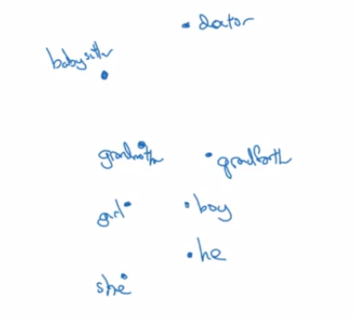 doctor
babysitter
grandmother grandfather
girl boy
he
she